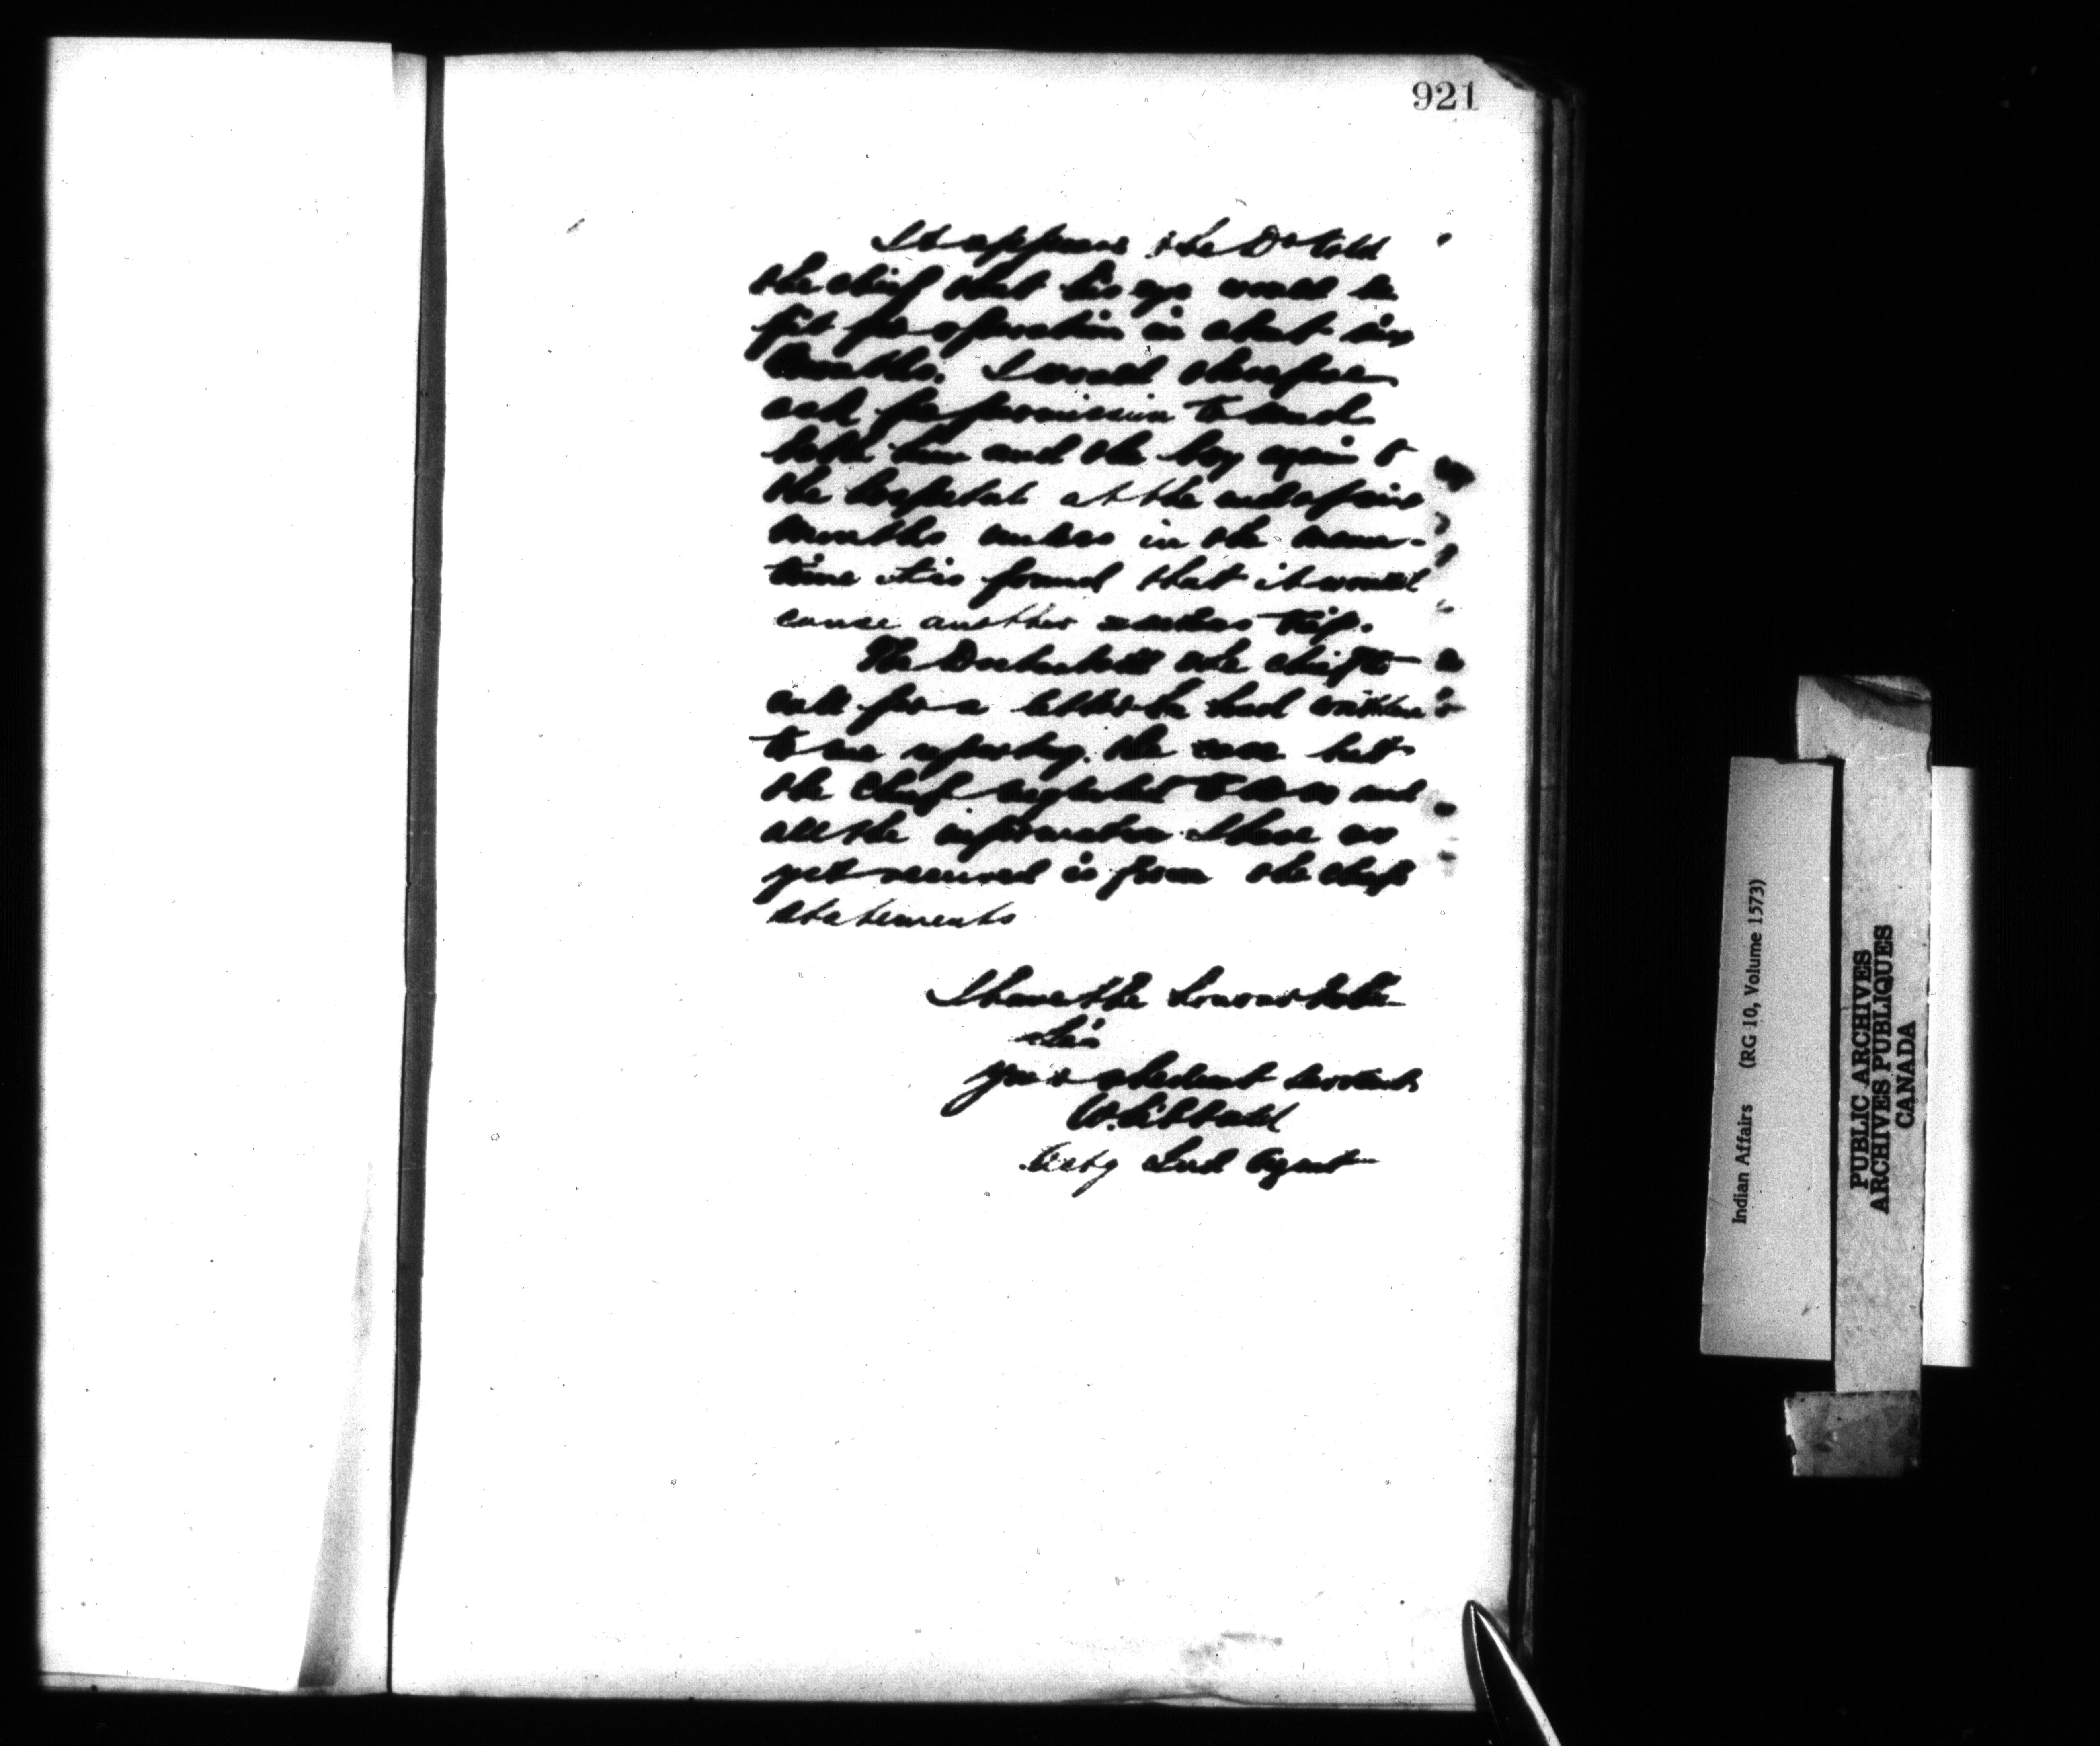 921
It appears the Dr told
the chief that his eye would be
fit for operation in about six
Months. I would therefore
ask for permission to send
both him and the boy again to
the hospital at the end of six
Months unless in the mean-
time it is found that it would
cause another useless trip.
The Doctor told the chief to
call for a letter he had written
to me reporting the case but
the Chief neglected to do so and
all the information I have as
yet received is from the chief's
statements
I have the honour to be
Sir
your obedient servant
W. Sibbald
Actg Ind Agent
Indian Affairs (RG 10, Volume 1573)
PUBLIC ARCHIVES
ARCHIVES PUBLIQUES
CANADA